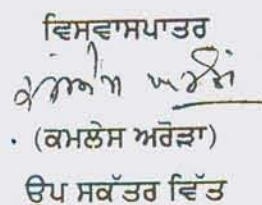 ਵਿਸਵਾਸਪਾਤਰ
(ਕਮਲੇਸ ਅਰੋੜਾ)
ਉਪ ਸਕੱਤਰ ਵਿੱਤ